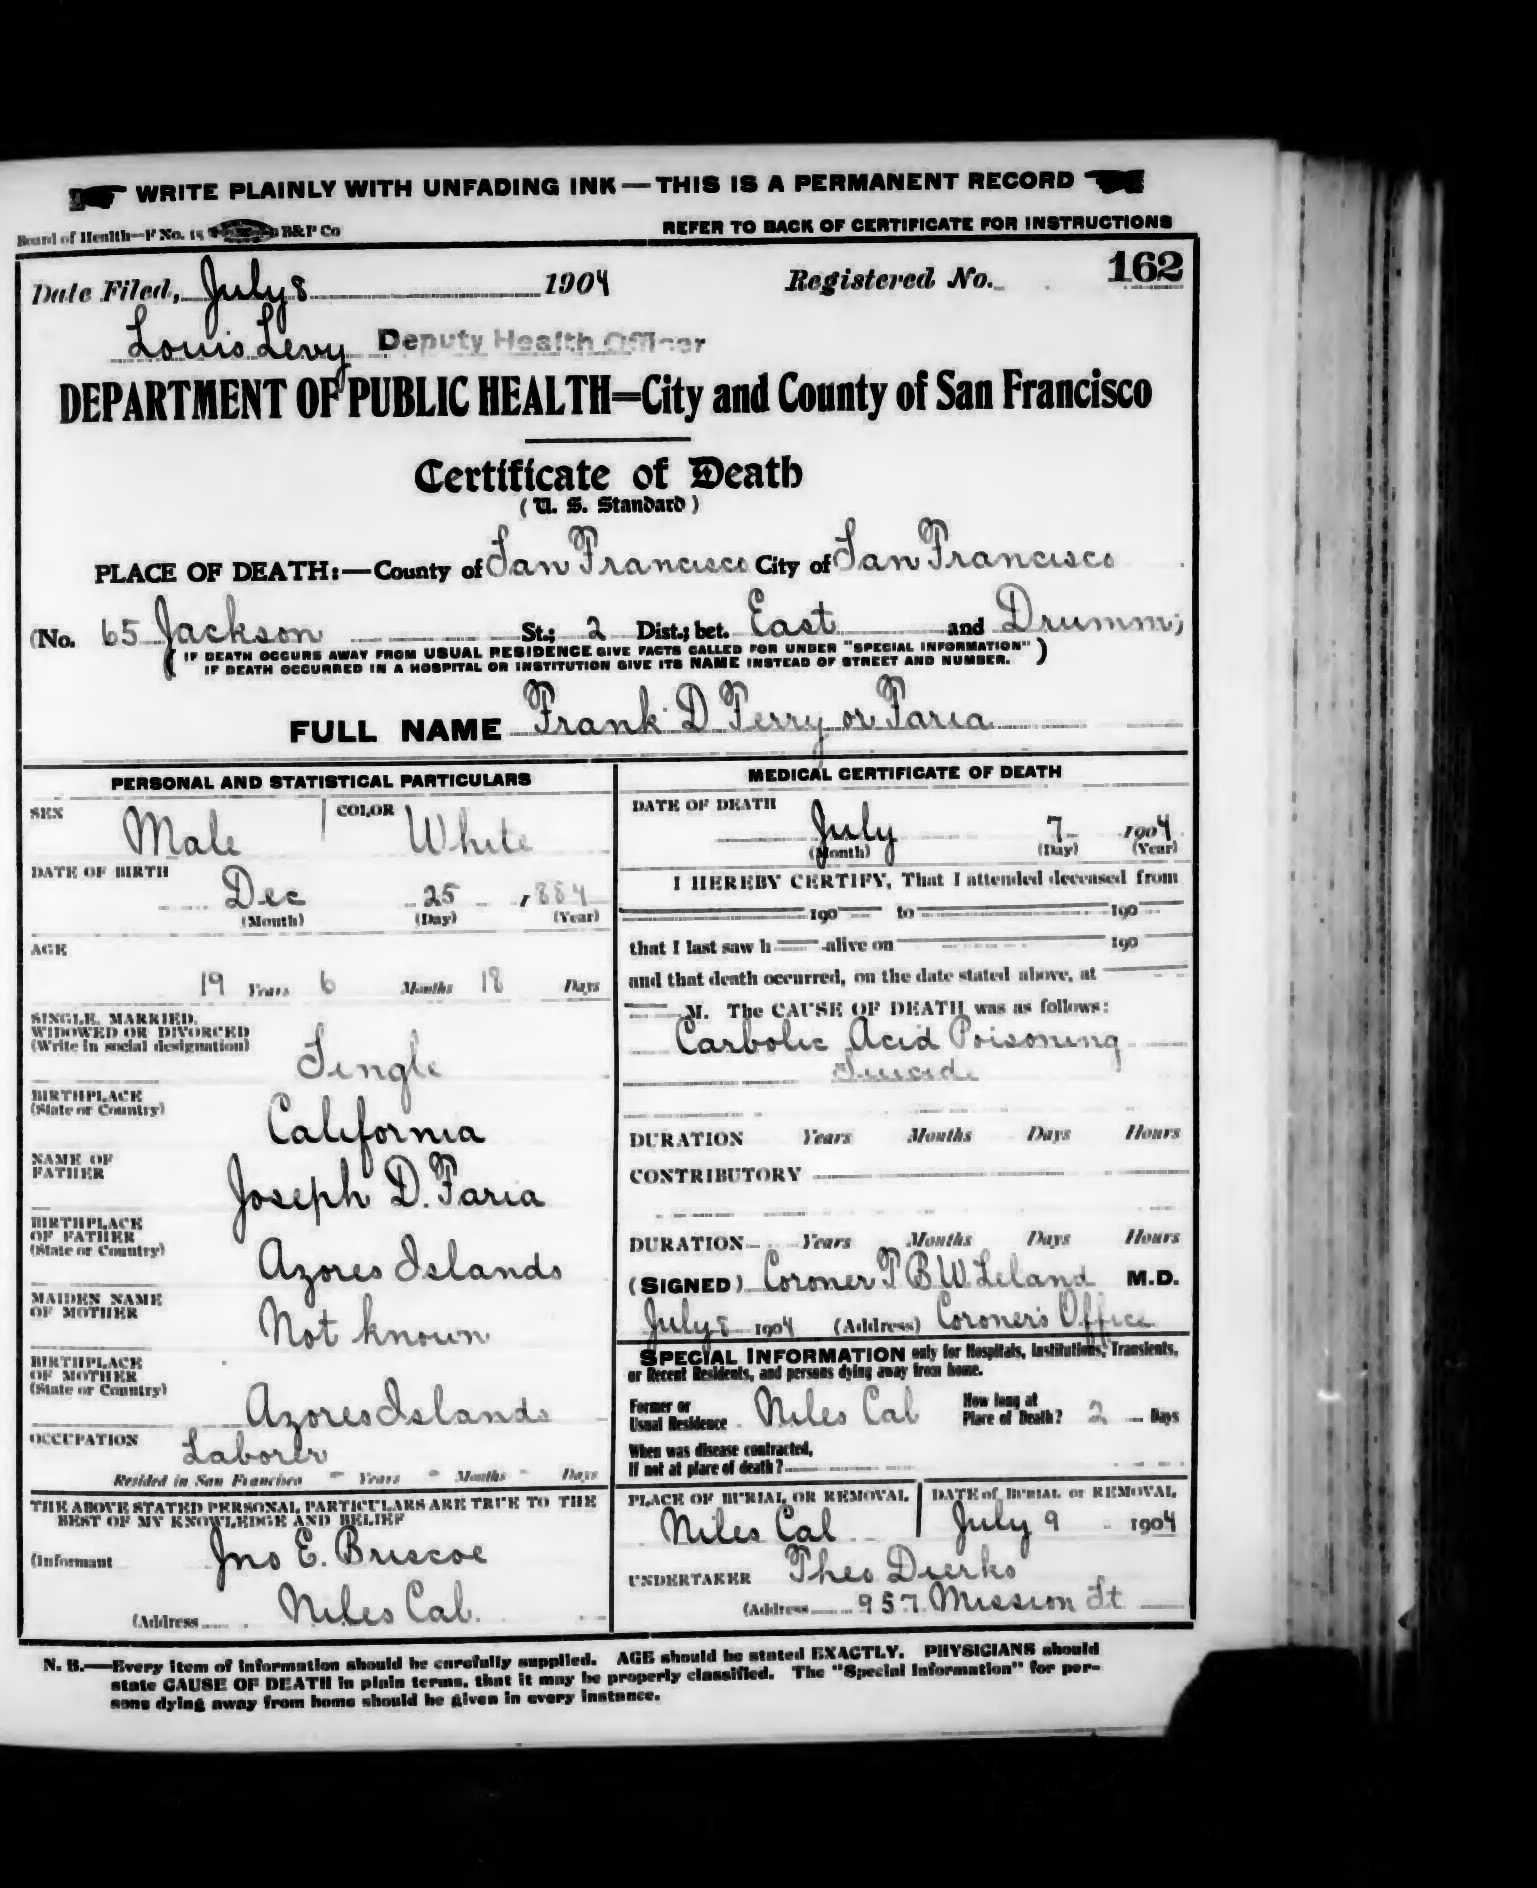 WRITE PLAINLY WITH UNFADING INK—THIS IS A PERMANENT RECORD
Board of Health—F No. 15 B&P Co
REFER TO BACK OF CERTIFICATE FOR INSTRUCTIONS
Date Filed, July 8 1904 Registered No. 162
Louis Levy Deputy Health Officer
DEPARTMENT OF PUBLIC HEALTH=City and County of San Francisco
Certificate of Death
(U. S. Standard)
PLACE OF DEATH:—County of San Francisco City of San Francisco
(No. 65 Jackson St.; 2 Dist.; bet. East and Drumm;
( IF DEATH OCCURS AWAY FROM USUAL RESIDENCE GIVE FACTS CALLED FOR UNDER "SPECIAL INFORMATION" )
IF DEATH OCCURRED IN A HOSPITAL OR INSTITUTION GIVE ITS NAME INSTEAD OF STREET AND NUMBER.
FULL NAME Frank D Perry or Faria
PERSONAL AND STATISTICAL PARTICULARS
SEX Male COLOR White
DATE OF BIRTH
Dec 25 1884
(Month) (Day) (Year)
AGE
19 Years 6 Months 18 Days
SINGLE, MARRIED,
WIDOWED OR DIVORCED
(Write in social designation)
Single
BIRTHPLACE
(State or Country)
California
NAME OF
FATHER
Joseph D. Faria
BIRTHPLACE
OF FATHER
(State or Country)
Azores Islands
MAIDEN NAME
OF MOTHER
Not known
BIRTHPLACE
OF MOTHER
(State or Country)
Azores Islands
OCCUPATION
Laborer
Resided in San Francisco - Years - Months - Days
THE ABOVE STATED PERSONAL PARTICULARS ARE TRUE TO THE
BEST OF MY KNOWLEDGE AND BELIEF
(Informant Jno E. Briscoe
(Address Niles Cal.
MEDICAL CERTIFICATE OF DEATH
DATE OF DEATH
July 7 1904
(Month) (Day) (Year)
I HEREBY CERTIFY, That I attended deceased from
190 to 190
that I last saw h alive on 190
and that death occurred, on the date stated above, at
M. The CAUSE OF DEATH was as follows:
Carbolic Acid Poisoning
Suicide
DURATION Years Months Days Hours
CONTRIBUTORY
DURATION Years Months Days Hours
(SIGNED) Coroner T B W Leland M.D.
July 8 1904 (Address) Coroner's Office
SPECIAL INFORMATION only for Hospitals, Institutions, Transients,
or Recent Residents, and persons dying away from home.
Former or
Usual Residence Niles Cal
How long at
Place of Death? 2 Days
When was disease contracted,
If not at place of death?
PLACE OF BURIAL OR REMOVAL
Niles Cal
DATE of BURIAL or REMOVAL
July 9 1904
UNDERTAKER Theo Dierks
(Address 957 Mission St
N. B.—Every item of information should be carefully supplied. AGE should be stated EXACTLY. PHYSICIANS should
state CAUSE OF DEATH in plain terms, that it may be properly classified. The "Special Information" for per-
sons dying away from home should be given in every instance.